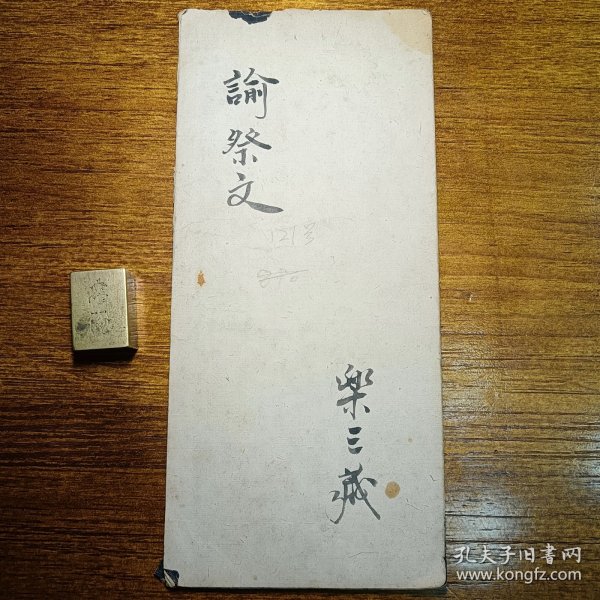 諭祭文
樂三藏
孔夫子旧書网
www.kongfz.com